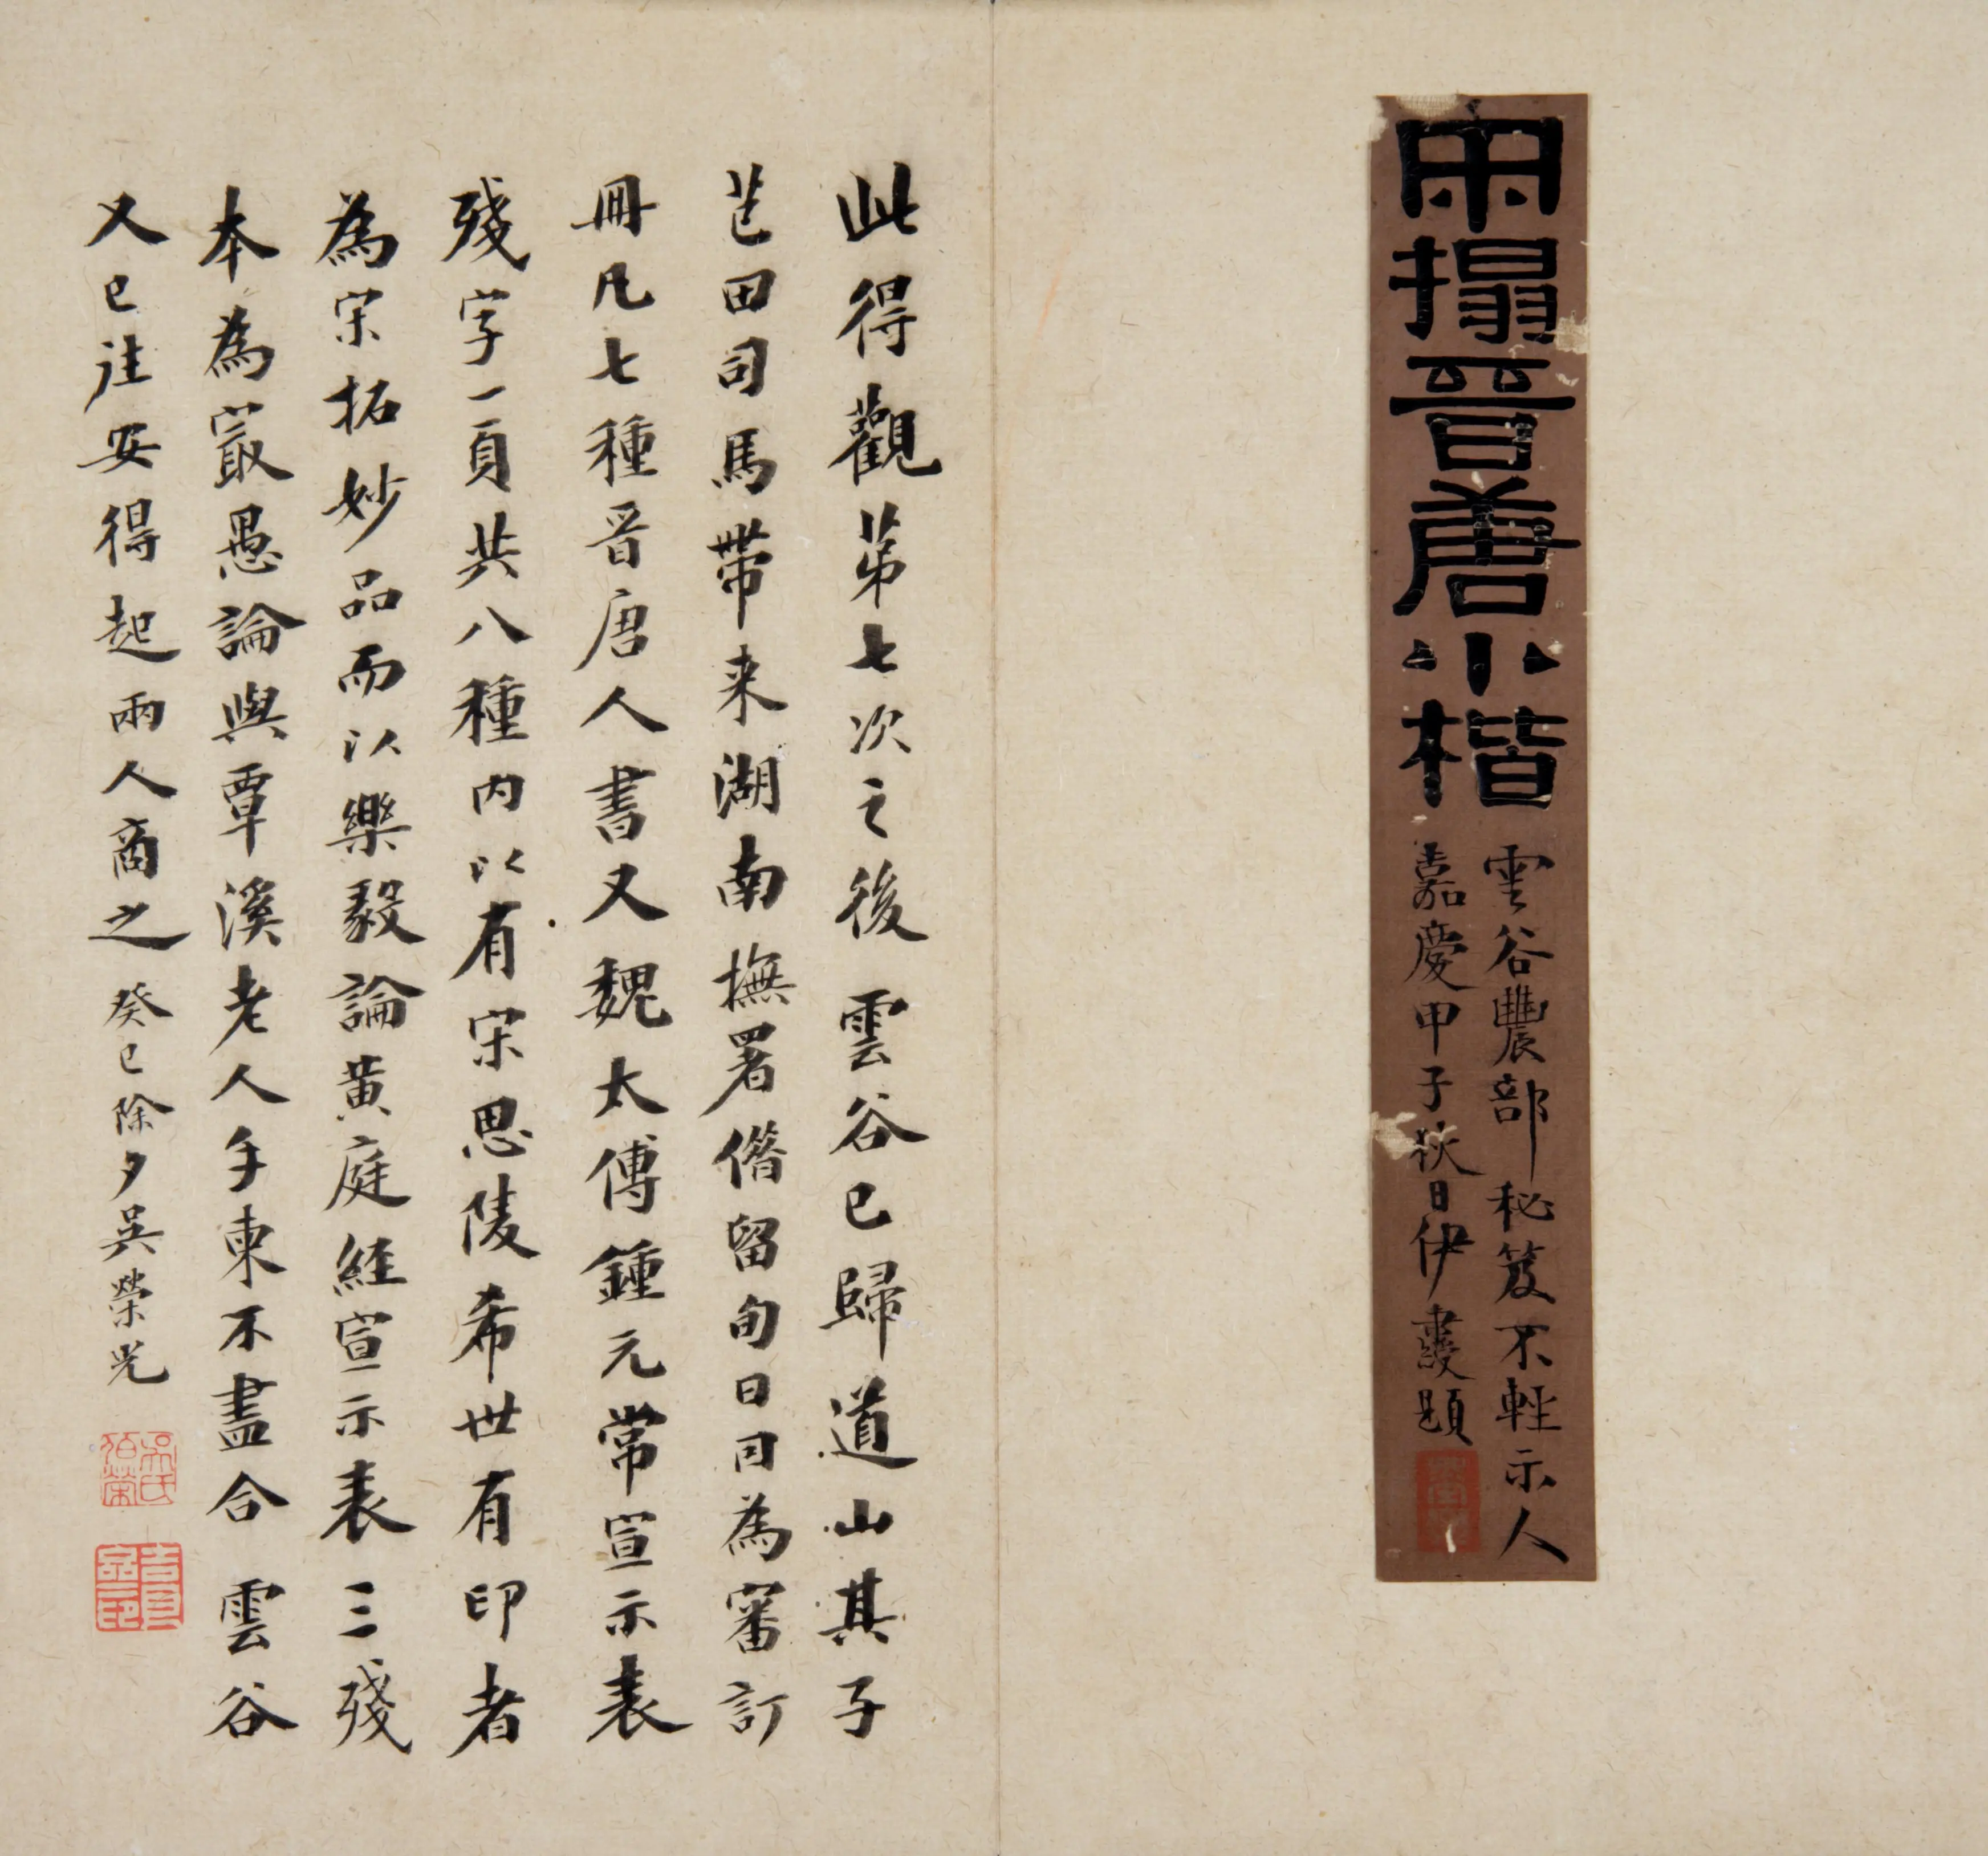 宋搨晉唐小楷
雲谷農部秘笈不輕示人
嘉慶甲子秋日伊秉綬題
此得觀苐七次之後雲谷已歸道山其子
芑田司馬帶来湖南撫署偺留旬日因為審訂
冊凡七種晉唐人書又魏太傅鍾元常宣示表
殘字一頁共八種内以有宋思陵希世有印者
為宋拓妙品而以樂毅論黃庭經宣示表三殘
本為冣愚論與覃溪老人手柬不盡合雲谷
又已往安得起兩人商之癸巳除夕吳榮光
吳氏荷屋